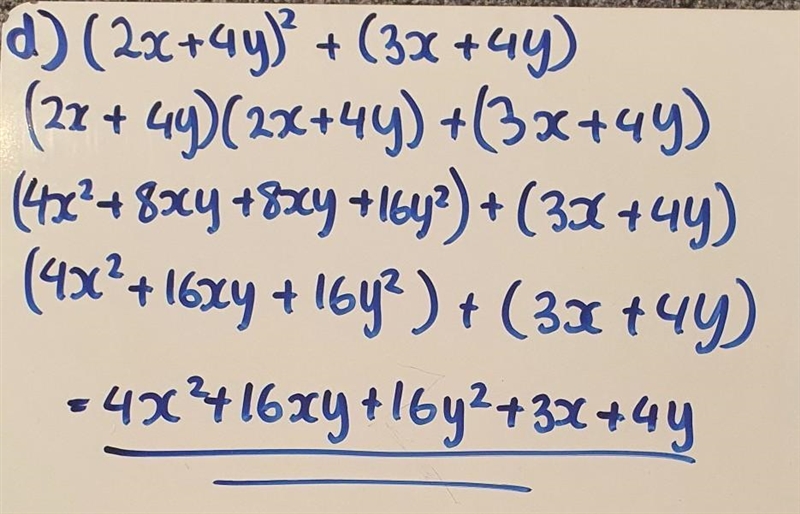 d) (2x+4y)² + (3x+4y)
(2x + 4y)(2x+4y) +(3x+4y)
(4x²+8xy+8xy+16y²)+(3x+4y)
(4x²+16xy+16y²)+(3x+4y)
=4x²+16xy+16y²+3x+4y